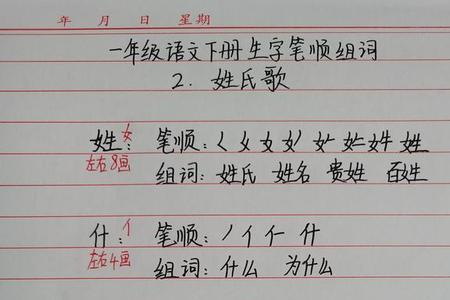 年 月 日 星期
一年级语文下册生字笔顺组词
2. 姓氏歌
姓: 女 笔顺: 𡿨 女 女 女 女 女 姓 姓
左右8画 组词: 姓氏 姓名 贵姓 百姓
什: 亻 笔顺: 丿 亻 仁 什
左右4画 组词: 什么 为什么